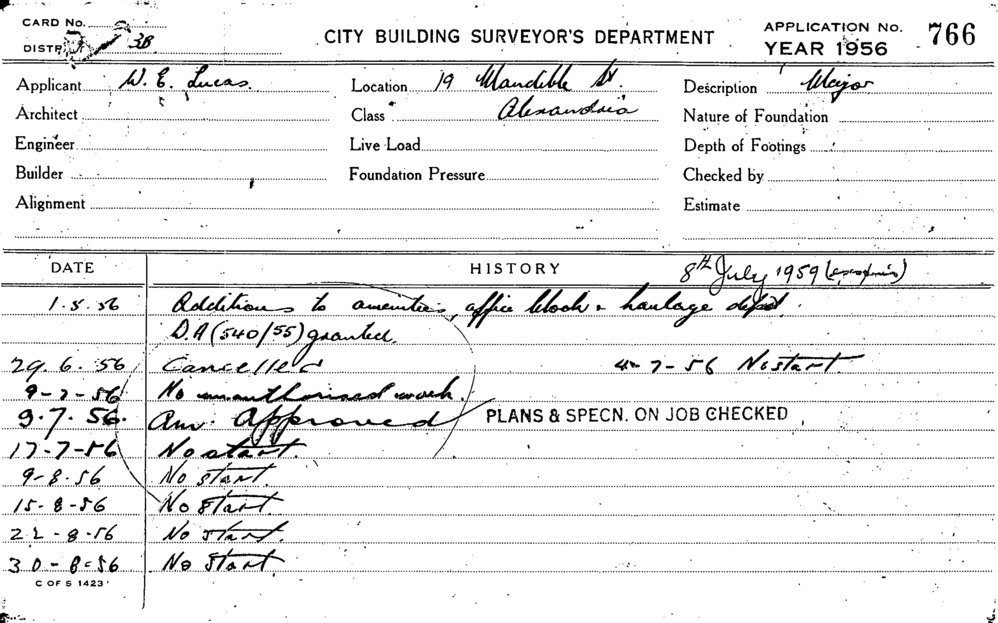 CARD No.
DISTRICT 3B
CITY BUILDING SURVEYOR'S DEPARTMENT
APPLICATION No. 766
YEAR 1956
Applicant W. E. Lucas.
Location 19 Mandible St.
Description Major
Architect
Class Alexandria
Nature of Foundation
Engineer
Live Load
Depth of Footings
Builder
Foundation Pressure
Checked by
Alignment
Estimate
DATE HISTORY 8th July 1959
1.5.56 Additions to amenities, office block & haulage depot.
D.A (540/55) granted.
29.6.56 Cancelled 4-7-56 No start
9-7-56 No unauthorised work.
9.7.56. Am. Approved PLANS & SPECN. ON JOB CHECKED
17-7-56 No start.
9-8-56 No start.
15-8-56 No start.
22-8-56 No start.
30-8-56 No start
C OF S 1423